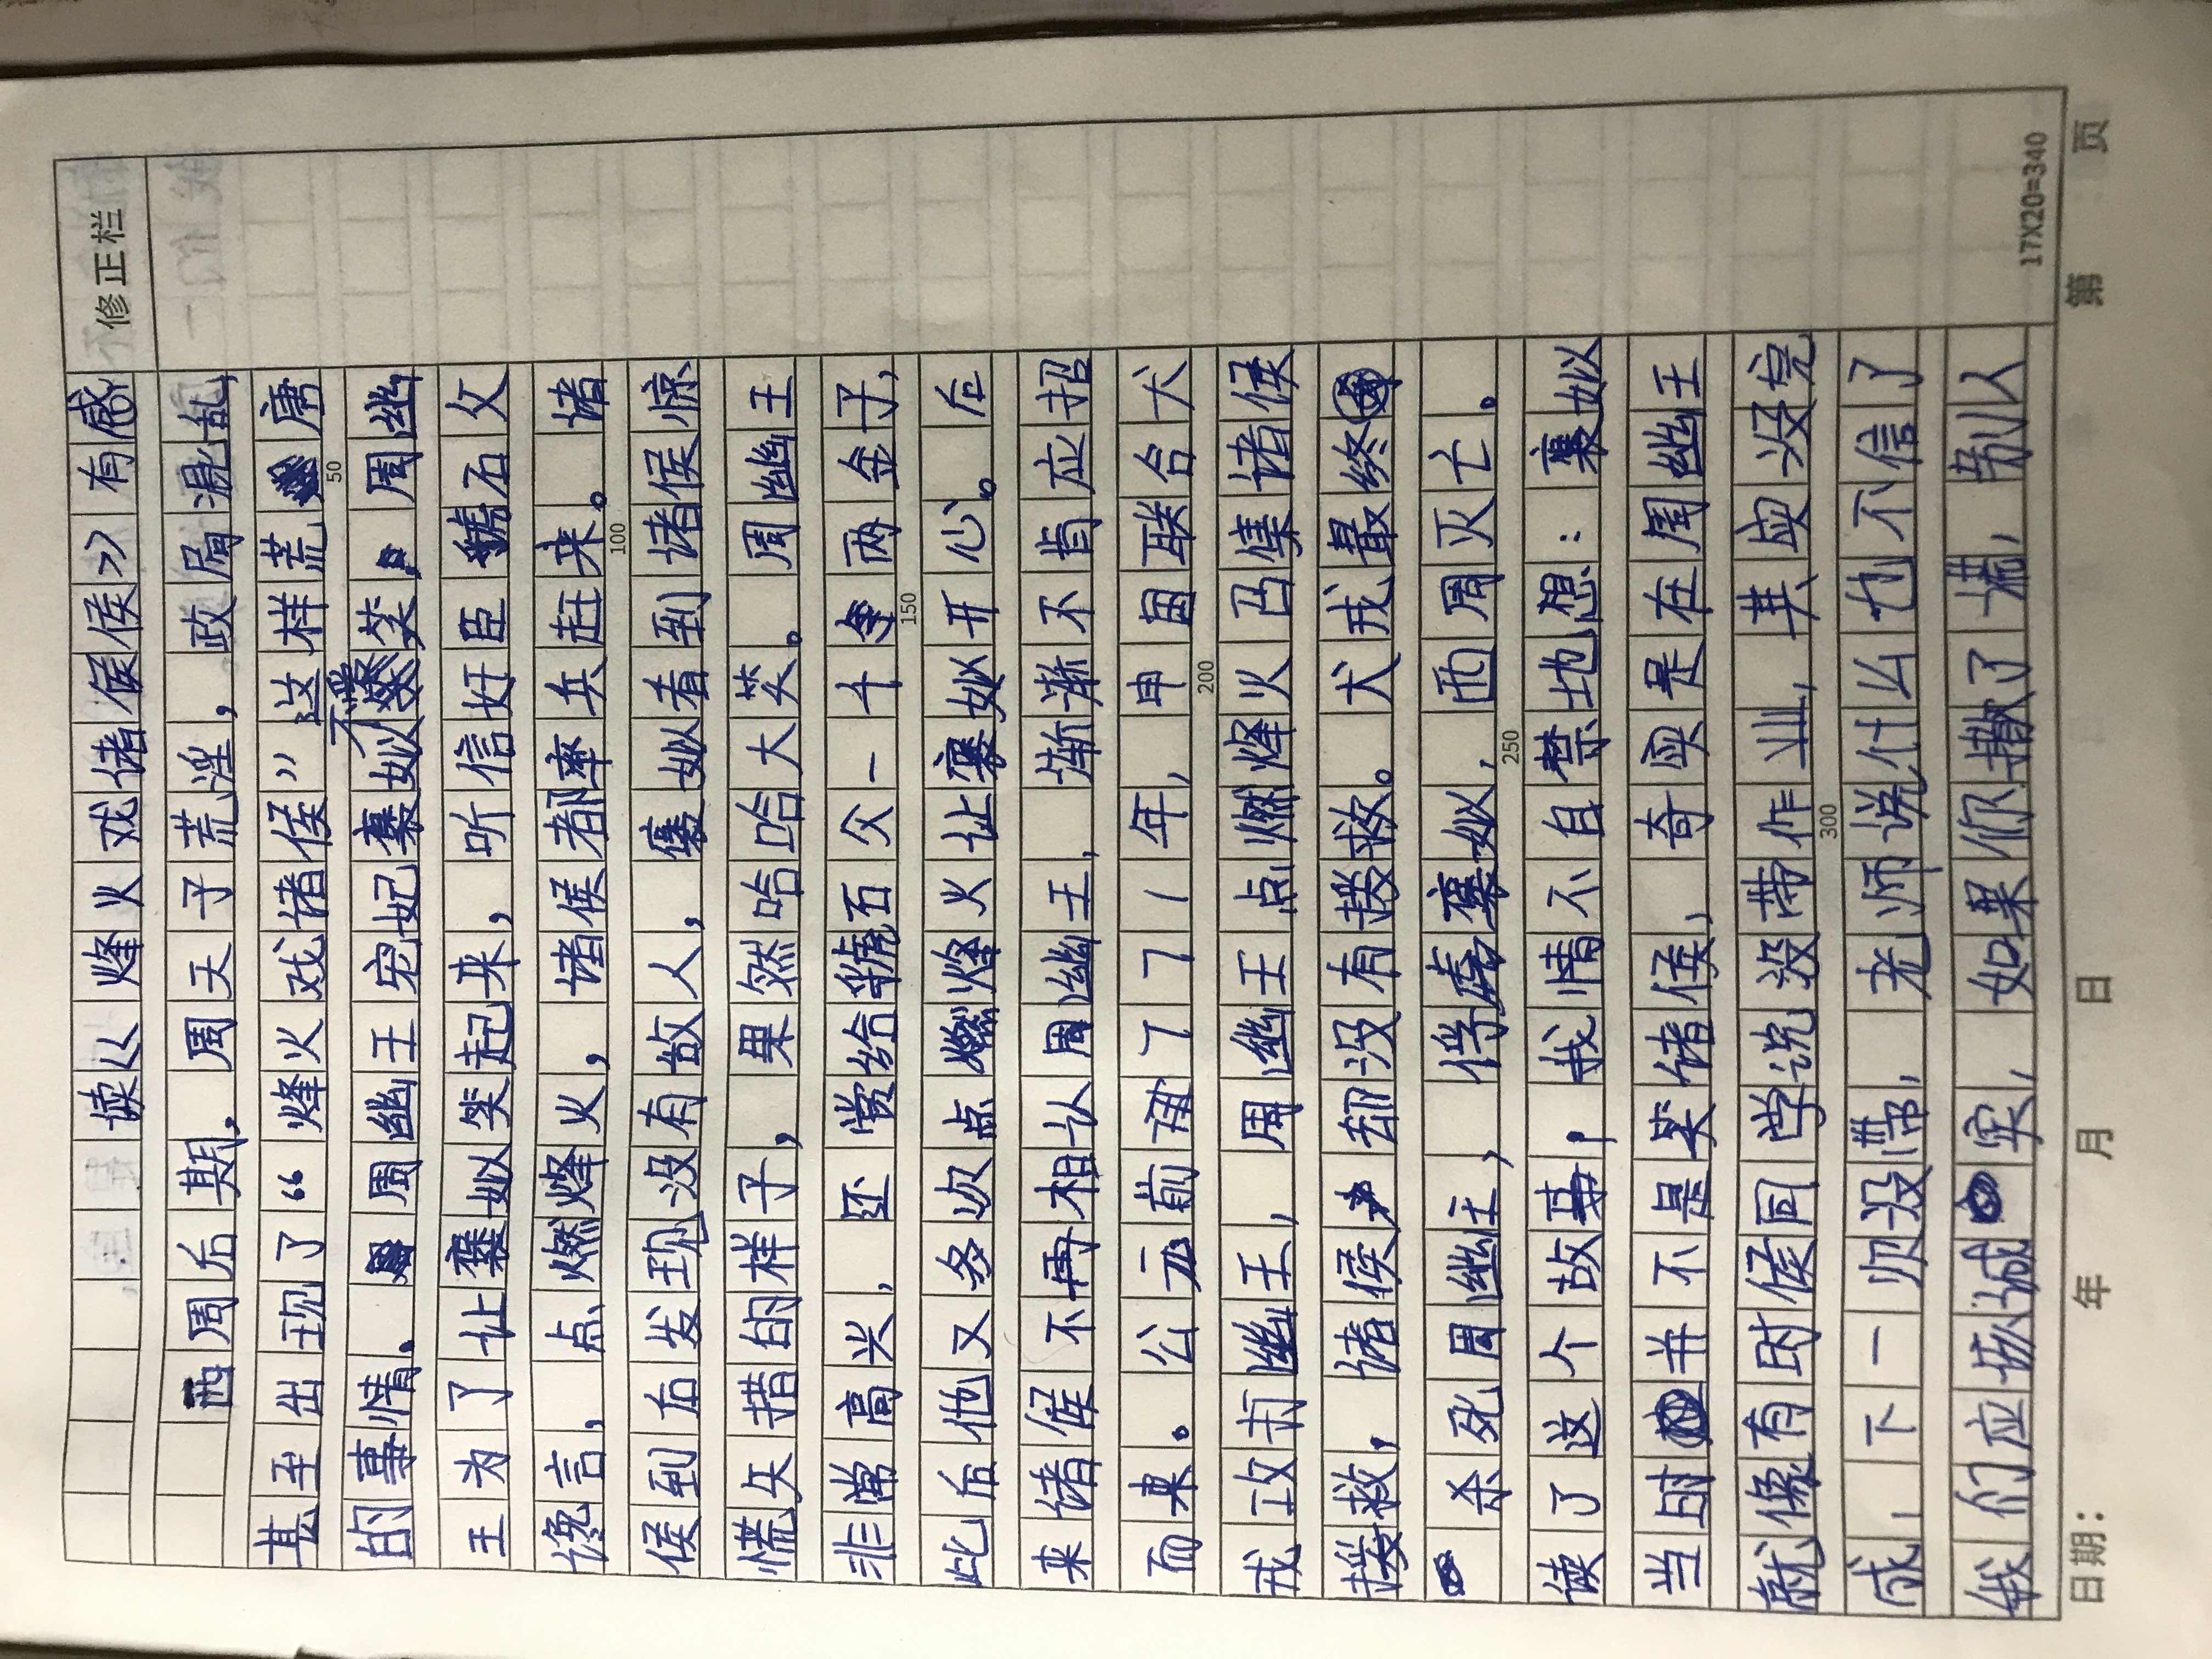 读《烽火戏诸侯》有感
修正栏
西周后期，周天子荒淫，政局混乱，
甚至出现了“烽火戏诸侯”这样荒唐
50
的事情。周幽王宠妃褒姒不爱笑，周幽
王为了让褒姒笑起来，听信奸臣虢石父
谗言，点燃烽火，诸侯都率兵赶来。诸
100
侯到后发现没有敌人，褒姒看到诸侯惊
慌失措的样子，果然哈哈大笑。周幽王
非常高兴，还赏给虢石父一千两金子，
150
此后他又多次点燃烽火让褒姒开心。后
来诸候不再相认周幽王，渐渐不肯应招
而来。公元前771年，申国联合犬
200
戎攻打幽王，周幽王点燃烽火召集诸侯
援救，诸侯却没有援救。犬戎最终
杀死周幽王，俘虏褒姒，西周灭亡。
250
读了这个故事，我情不自禁地想：褒姒
当时并不是笑诸侯，奇实是在周幽王
就像有时候同学说没带作业，其实没完
300
成，下一次没带，老师说什么也不信了
我们应该诚实，如果你撒了谎，别人
17X20=340
日期： 年 月 日 第 页